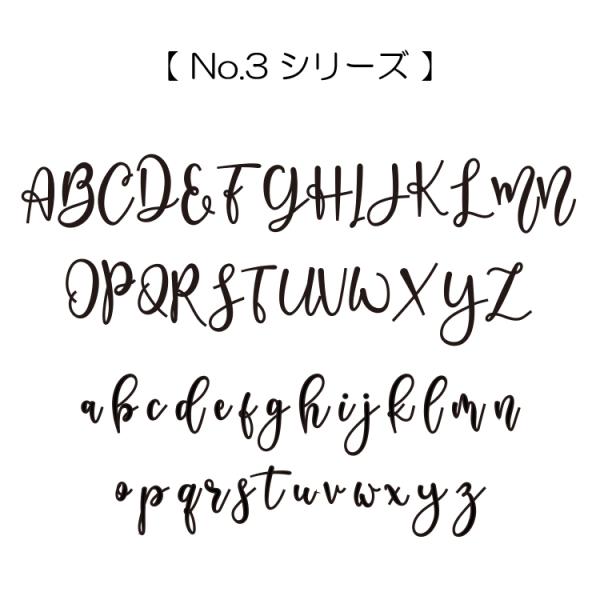 【 No.3 シリーズ 】
ABCDEFGHIJKLMN
OPQRSTUVWXYZ
abcdefghijklmn
opqrstuvwxyz